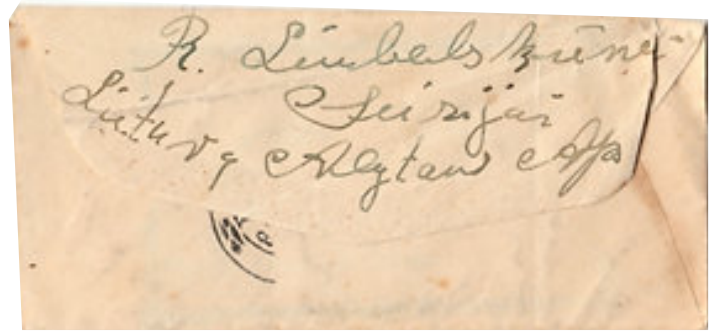 R. Limbalskienė
Seirijai
Lietuva Alytaus Ap